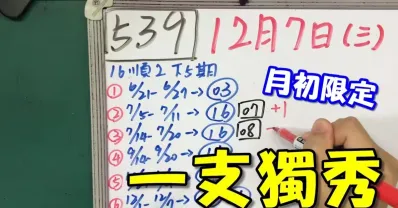 539 12月7日(三)
16順2下5期
月初限定
① 6/21- 6/27→ 03
② 7/5- 7/11→ 16 07 +1
③ 7/14- 7/20→ 16 08
④ 9/14- 9/20→
一支獨秀